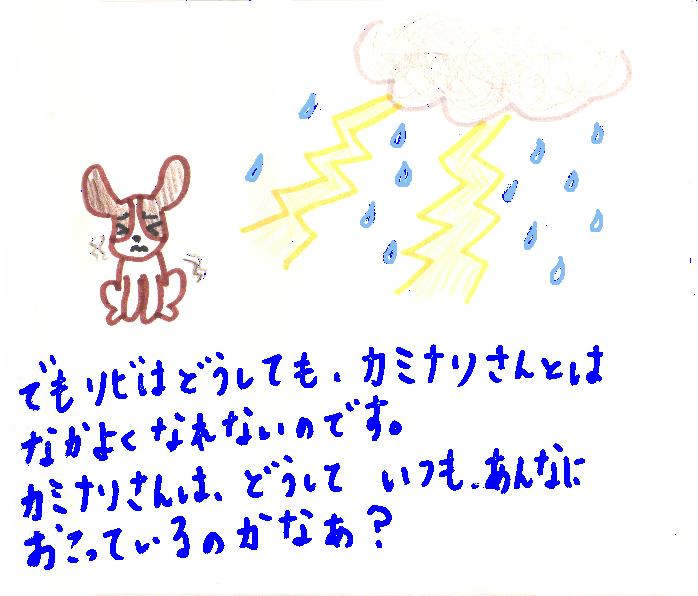 でもリビはどうしても、カミナリさんとは
なかよくなれないのです。
カミナリさんは、どうして いつも、あんなに
おこっているのかなあ？